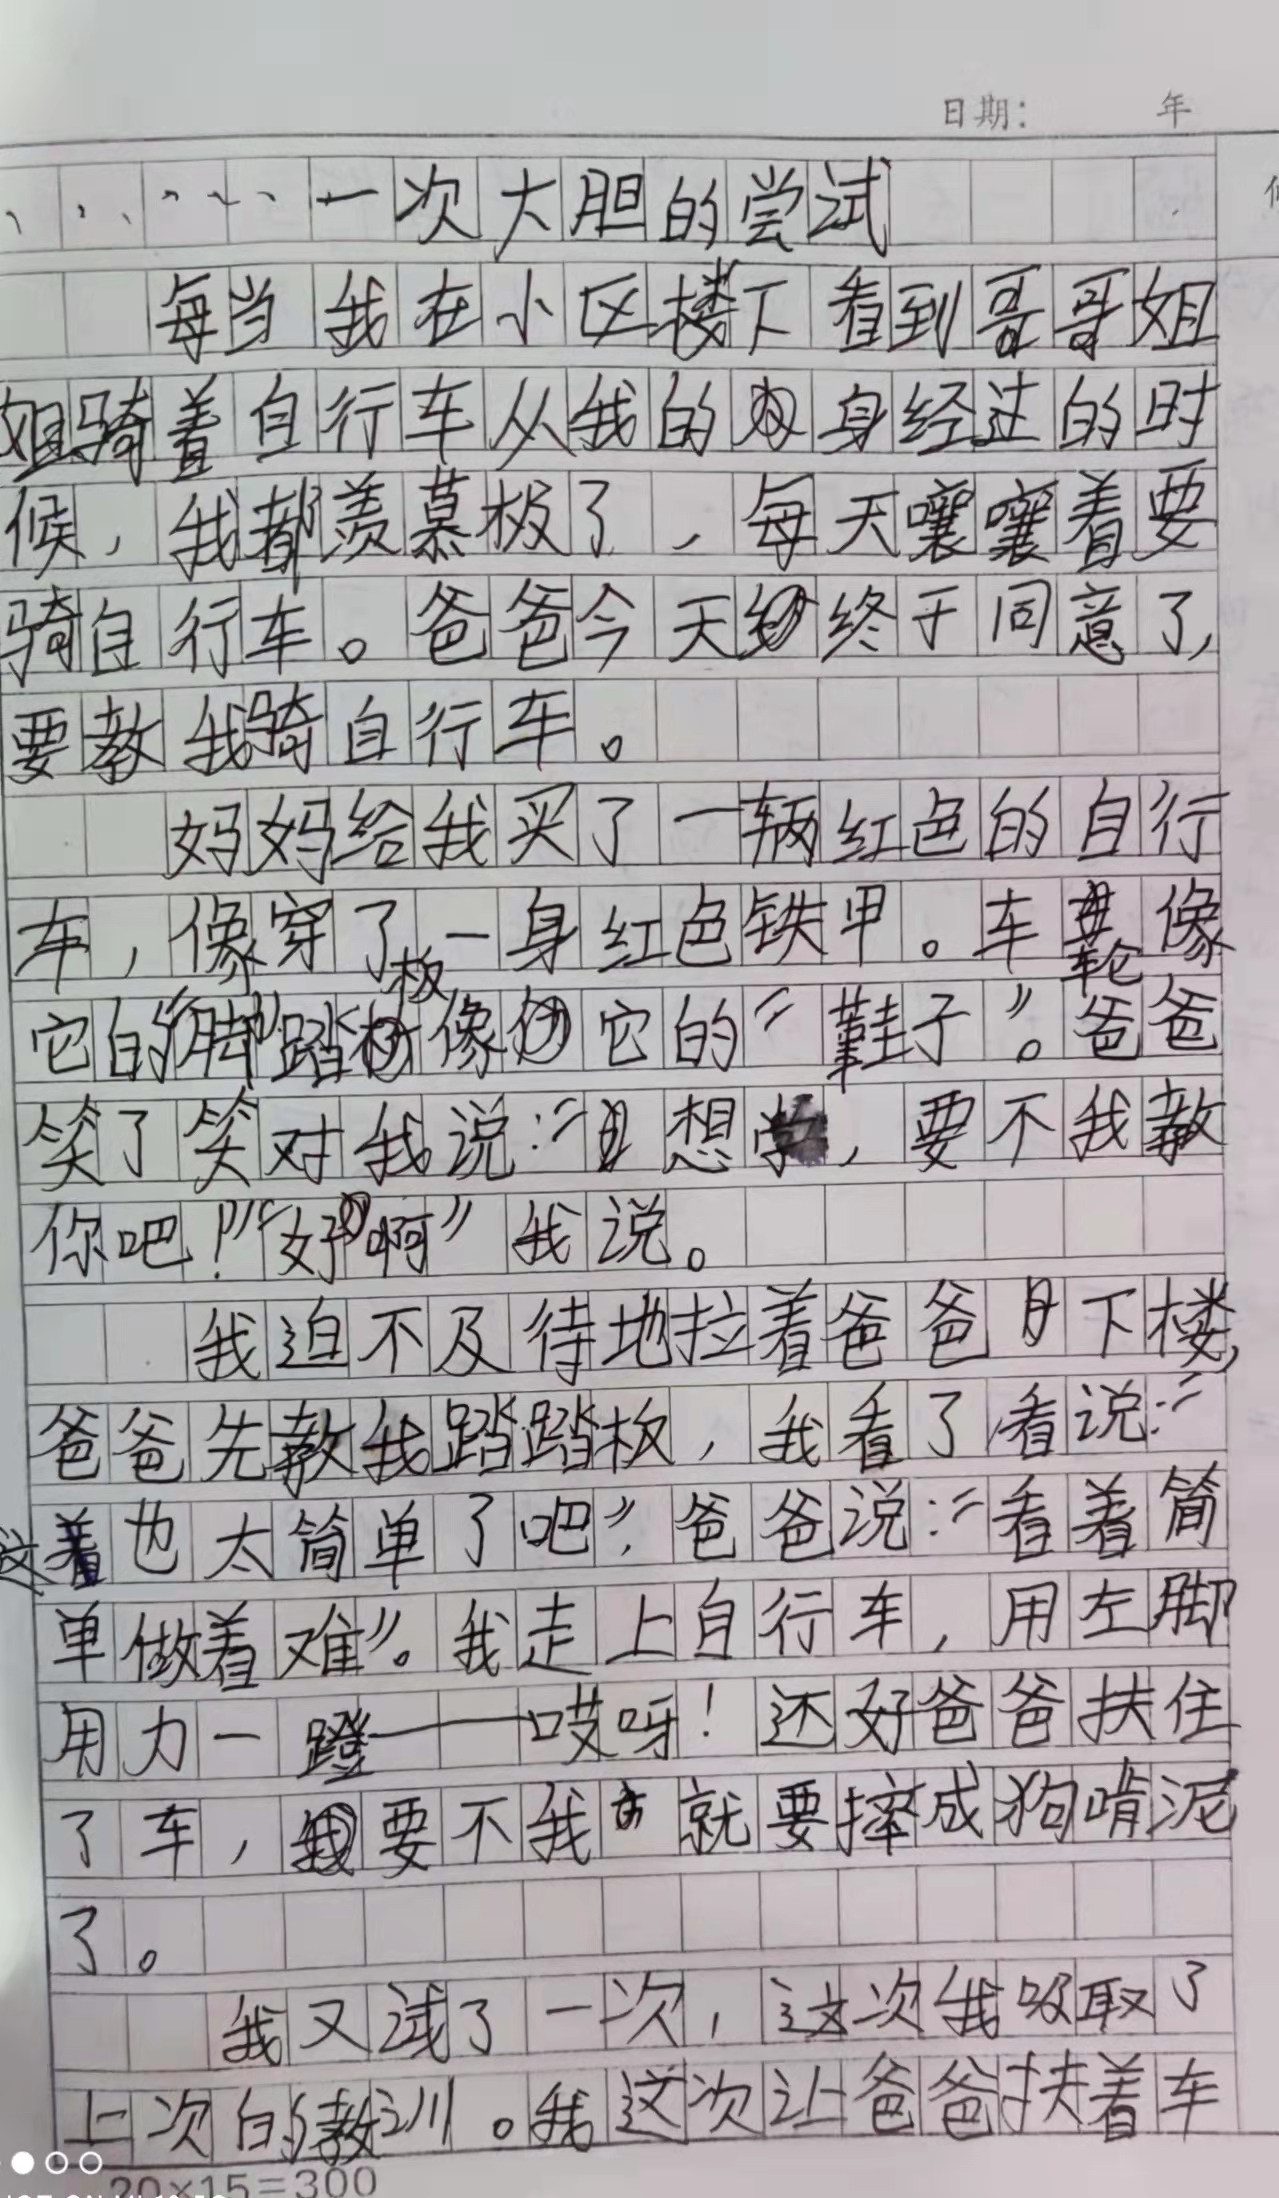 日期： 年
一次大胆的尝试
每当我在小区楼下看到哥哥姐
姐骑着自行车从我的身经过的时
候，我都羡慕极了，每天嚷嚷着要
骑自行车。爸爸今天终于同意了，
要教我骑自行车。
妈妈给我买了一辆红色的自行
车，像穿了一身红色铁甲。车轮像
它的“脚”踏板像它的“鞋子”。爸爸
笑了笑对我说：“想学，要不我教
你吧！”“好啊”我说。
我迫不及待地拉着爸爸下楼，
爸爸先教我踏踏板，我看了看说：“
这着也太简单了吧”，爸爸说：“看着简
单做着难”。我走上自行车，用左脚
用力一蹬——哎呀！还好爸爸扶住
了车，要不我就要摔成狗啃泥
了。
我又试了一次，这次我吸取了
上次的教训。我这次让爸爸扶着车
20×15=300